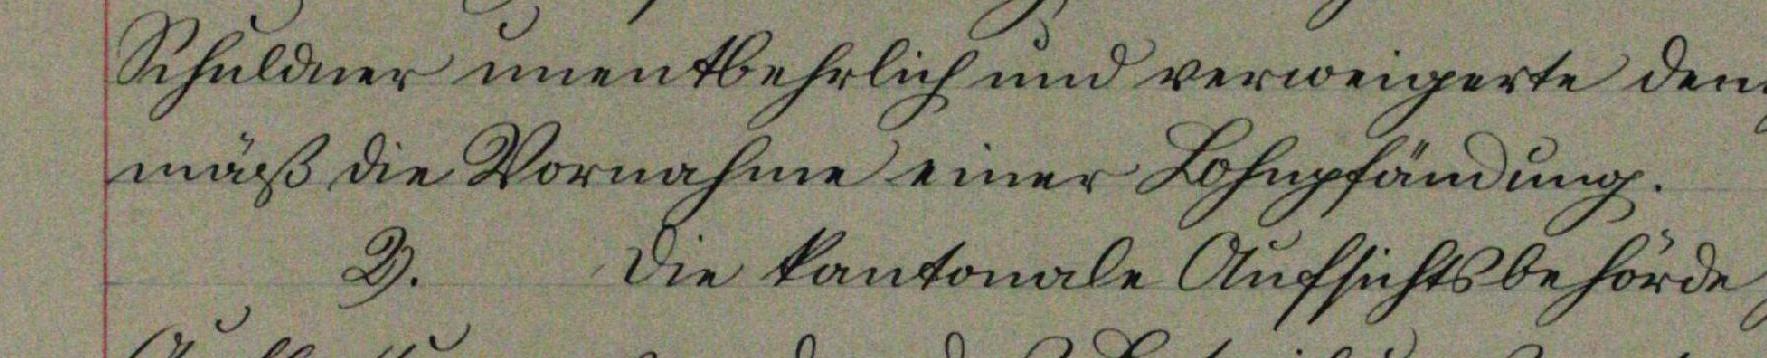 Schuldner unentbehrlich und verweigerte dem
mäß die Vornahme einer Lohnpfändung.
D. Die kantonale Aufsichtsbehörde